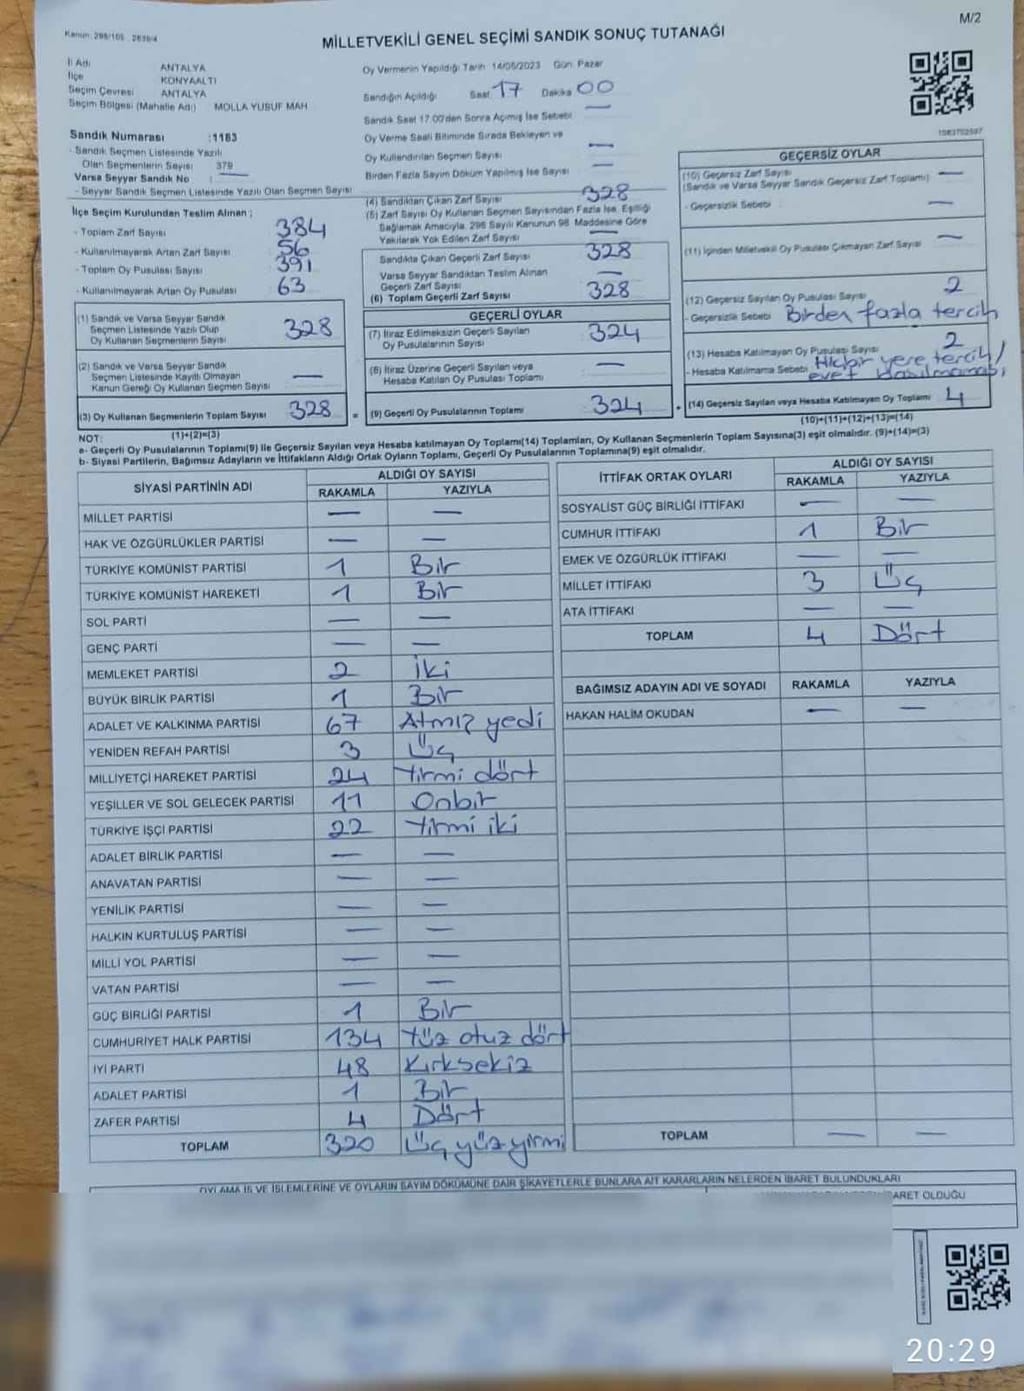 M/2
MİLLETVEKİLİ GENEL SEÇİMİ SANDIK SONUÇ TUTANAĞI
İl Adı ANTALYA
İlçe KONYAALTI
Seçim Çevresi ANTALYA
Seçim Bölgesi (Mahalle Adı) MOLLA YUSUF MAH
Sandık Numarası :1183
- Sandık Seçmen Listesinde Yazılı
Olan Seçmenlerin Sayısı 379
Varsa Seyyar Sandık No —
- Seyyar Sandık Seçmen Listesinde Yazılı Olan Seçmen Sayısı
Oy Vermenin Yapıldığı Tarih 14/05/2023 Gün Pazar
Sandığın Açıldığı Saat 17 Dakika 00
Sandık Saat 17.00'den Sonra Açılmış İse Sebebi —
Oy Verme Saati Bitiminde Sırada Bekleyen ve
Oy Kullandırılan Seçmen Sayısı —
Birden Fazla Sayım Döküm Yapılmış İse Sayısı —
İlçe Seçim Kurulundan Teslim Alınan ;
- Toplam Zarf Sayısı 384
- Kullanılmayarak Artan Zarf Sayısı 56
- Toplam Oy Pusulası Sayısı 391
- Kullanılmayarak Artan Oy Pusulası 63
(1) Sandık ve Varsa Seyyar Sandık
Seçmen Listesinde Yazılı Olup
Oy Kullanan Seçmenlerin Sayısı 328
(2) Sandık ve Varsa Seyyar Sandık
Seçmen Listesinde Kayıtlı Olmayan
Kanun Gereği Oy Kullanan Seçmen Sayısı —
(3) Oy Kullanan Seçmenlerin Toplam Sayısı 328
(1)+(2)=(3)
(4) Sandıktan Çıkan Zarf Sayısı 328
(5) Zarf Sayısı Oy Kullanan Seçmen Sayısından Fazla İse, Eşitliği
Sağlamak Amacıyla, 298 Sayılı Kanunun 98. Maddesine Göre
Yakılarak Yok Edilen Zarf Sayısı —
Sandıkta Çıkan Geçerli Zarf Sayısı 328
Varsa Seyyar Sandıktan Teslim Alınan
Geçerli Zarf Sayısı —
(6) Toplam Geçerli Zarf Sayısı 328
GEÇERLİ OYLAR
(7) İtiraz Edilmeksizin Geçerli Sayılan
Oy Pusulalarının Sayısı 324
(8) İtiraz Üzerine Geçerli Sayılan veya
Hesaba Katılan Oy Pusulası Toplamı —
= (9) Geçerli Oy Pusulalarının Toplamı 324
GEÇERSİZ OYLAR
(10) Geçersiz Zarf Sayısı —
(Sandık ve Varsa Seyyar Sandık Geçersiz Zarf Toplamı)
- Geçersizlik Sebebi —
(11) İçinden Milletvekili Oy Pusulası Çıkmayan Zarf Sayısı —
(12) Geçersiz Sayılan Oy Pusulası Sayısı 2
- Geçersizlik Sebebi Birden fazla tercih
(13) Hesaba Katılmayan Oy Pusulası Sayısı 2
- Hesaba Katılmama Sebebi Hiçbir yere tercih/
evet basılmaması
(14) Geçersiz Sayılan veya Hesaba Katılmayan Oy Toplamı 4
(10)+(11)+(12)+(13)=(14)
NOT:
a- Geçerli Oy Pusulalarının Toplamı(9) ile Geçersiz Sayılan veya Hesaba katılmayan Oy Toplamı(14) Toplamları, Oy Kullanan Seçmenlerin Toplam Sayısına(3) eşit olmalıdır. (9)+(14)=(3)
b- Siyasi Partilerin, Bağımsız Adayların ve İttifakların Aldığı Ortak Oyların Toplamı, Geçerli Oy Pusulalarının Toplamına(9) eşit olmalıdır.
SİYASİ PARTİNİN ADI ALDIĞI OY SAYISI
RAKAMLA YAZIYLA
MİLLET PARTİSİ — —
HAK VE ÖZGÜRLÜKLER PARTİSİ — —
TÜRKİYE KOMÜNİST PARTİSİ 1 Bir
TÜRKİYE KOMÜNİST HAREKETİ 1 Bir
SOL PARTİ — —
GENÇ PARTİ — —
MEMLEKET PARTİSİ 2 İki
BÜYÜK BİRLİK PARTİSİ 1 Bir
ADALET VE KALKINMA PARTİSİ 67 Atmış yedi
YENİDEN REFAH PARTİSİ 3 Üç
MİLLİYETÇİ HAREKET PARTİSİ 24 Yirmi dört
YEŞİLLER VE SOL GELECEK PARTİSİ 11 Onbir
TÜRKİYE İŞÇİ PARTİSİ 22 Yirmi iki
ADALET BİRLİK PARTİSİ — —
ANAVATAN PARTİSİ — —
YENİLİK PARTİSİ — —
HALKIN KURTULUŞ PARTİSİ — —
MİLLİ YOL PARTİSİ — —
VATAN PARTİSİ — —
GÜÇ BİRLİĞİ PARTİSİ 1 Bir
CUMHURİYET HALK PARTİSİ 134 Yüz otuz dört
İYİ PARTİ 48 Kırksekiz
ADALET PARTİSİ 1 Bir
ZAFER PARTİSİ 4 Dört
TOPLAM 320 Üç yüz yirmi
İTTİFAK ORTAK OYLARI ALDIĞI OY SAYISI
RAKAMLA YAZIYLA
SOSYALİST GÜÇ BİRLİĞİ İTTİFAKI — —
CUMHUR İTTİFAKI 1 Bir
EMEK VE ÖZGÜRLÜK İTTİFAKI — —
MİLLET İTTİFAKI 3 Üç
ATA İTTİFAKI — —
TOPLAM 4 Dört
BAĞIMSIZ ADAYIN ADI VE SOYADI RAKAMLA YAZIYLA
HAKAN HALİM OKUDAN — —
TOPLAM — —
OYLAMA İŞ VE İŞLEMLERİNE VE OYLARIN SAYIM DÖKÜMÜNE DAİR ŞİKAYETLERLE BUNLARA AİT KARARLARIN NELERDEN İBARET BULUNDUKLARI
OLDUĞU
20:29